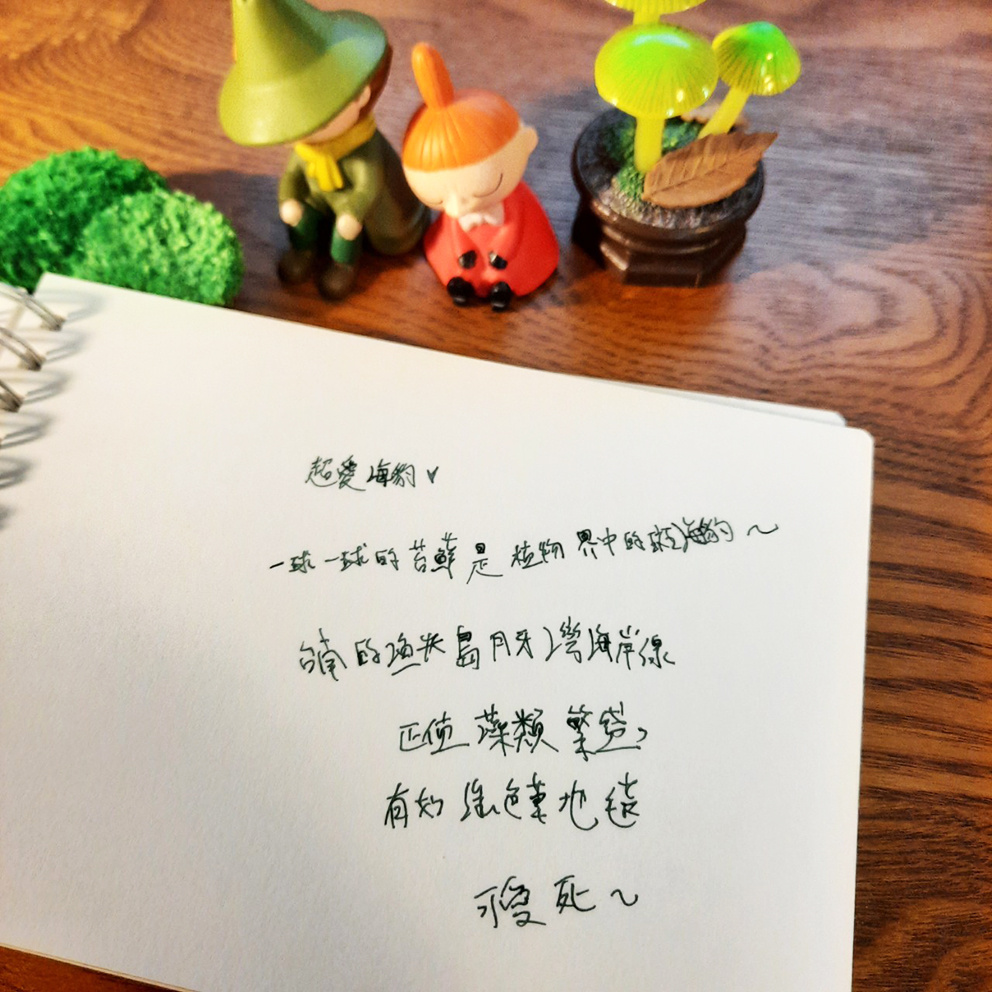 超愛海豹
一球一球的苔蘚是植物界中的斑海豹～
台南的漁光島月牙灣海岸線
正值藻類繁盛，
有如綠色草地毯
可愛死～